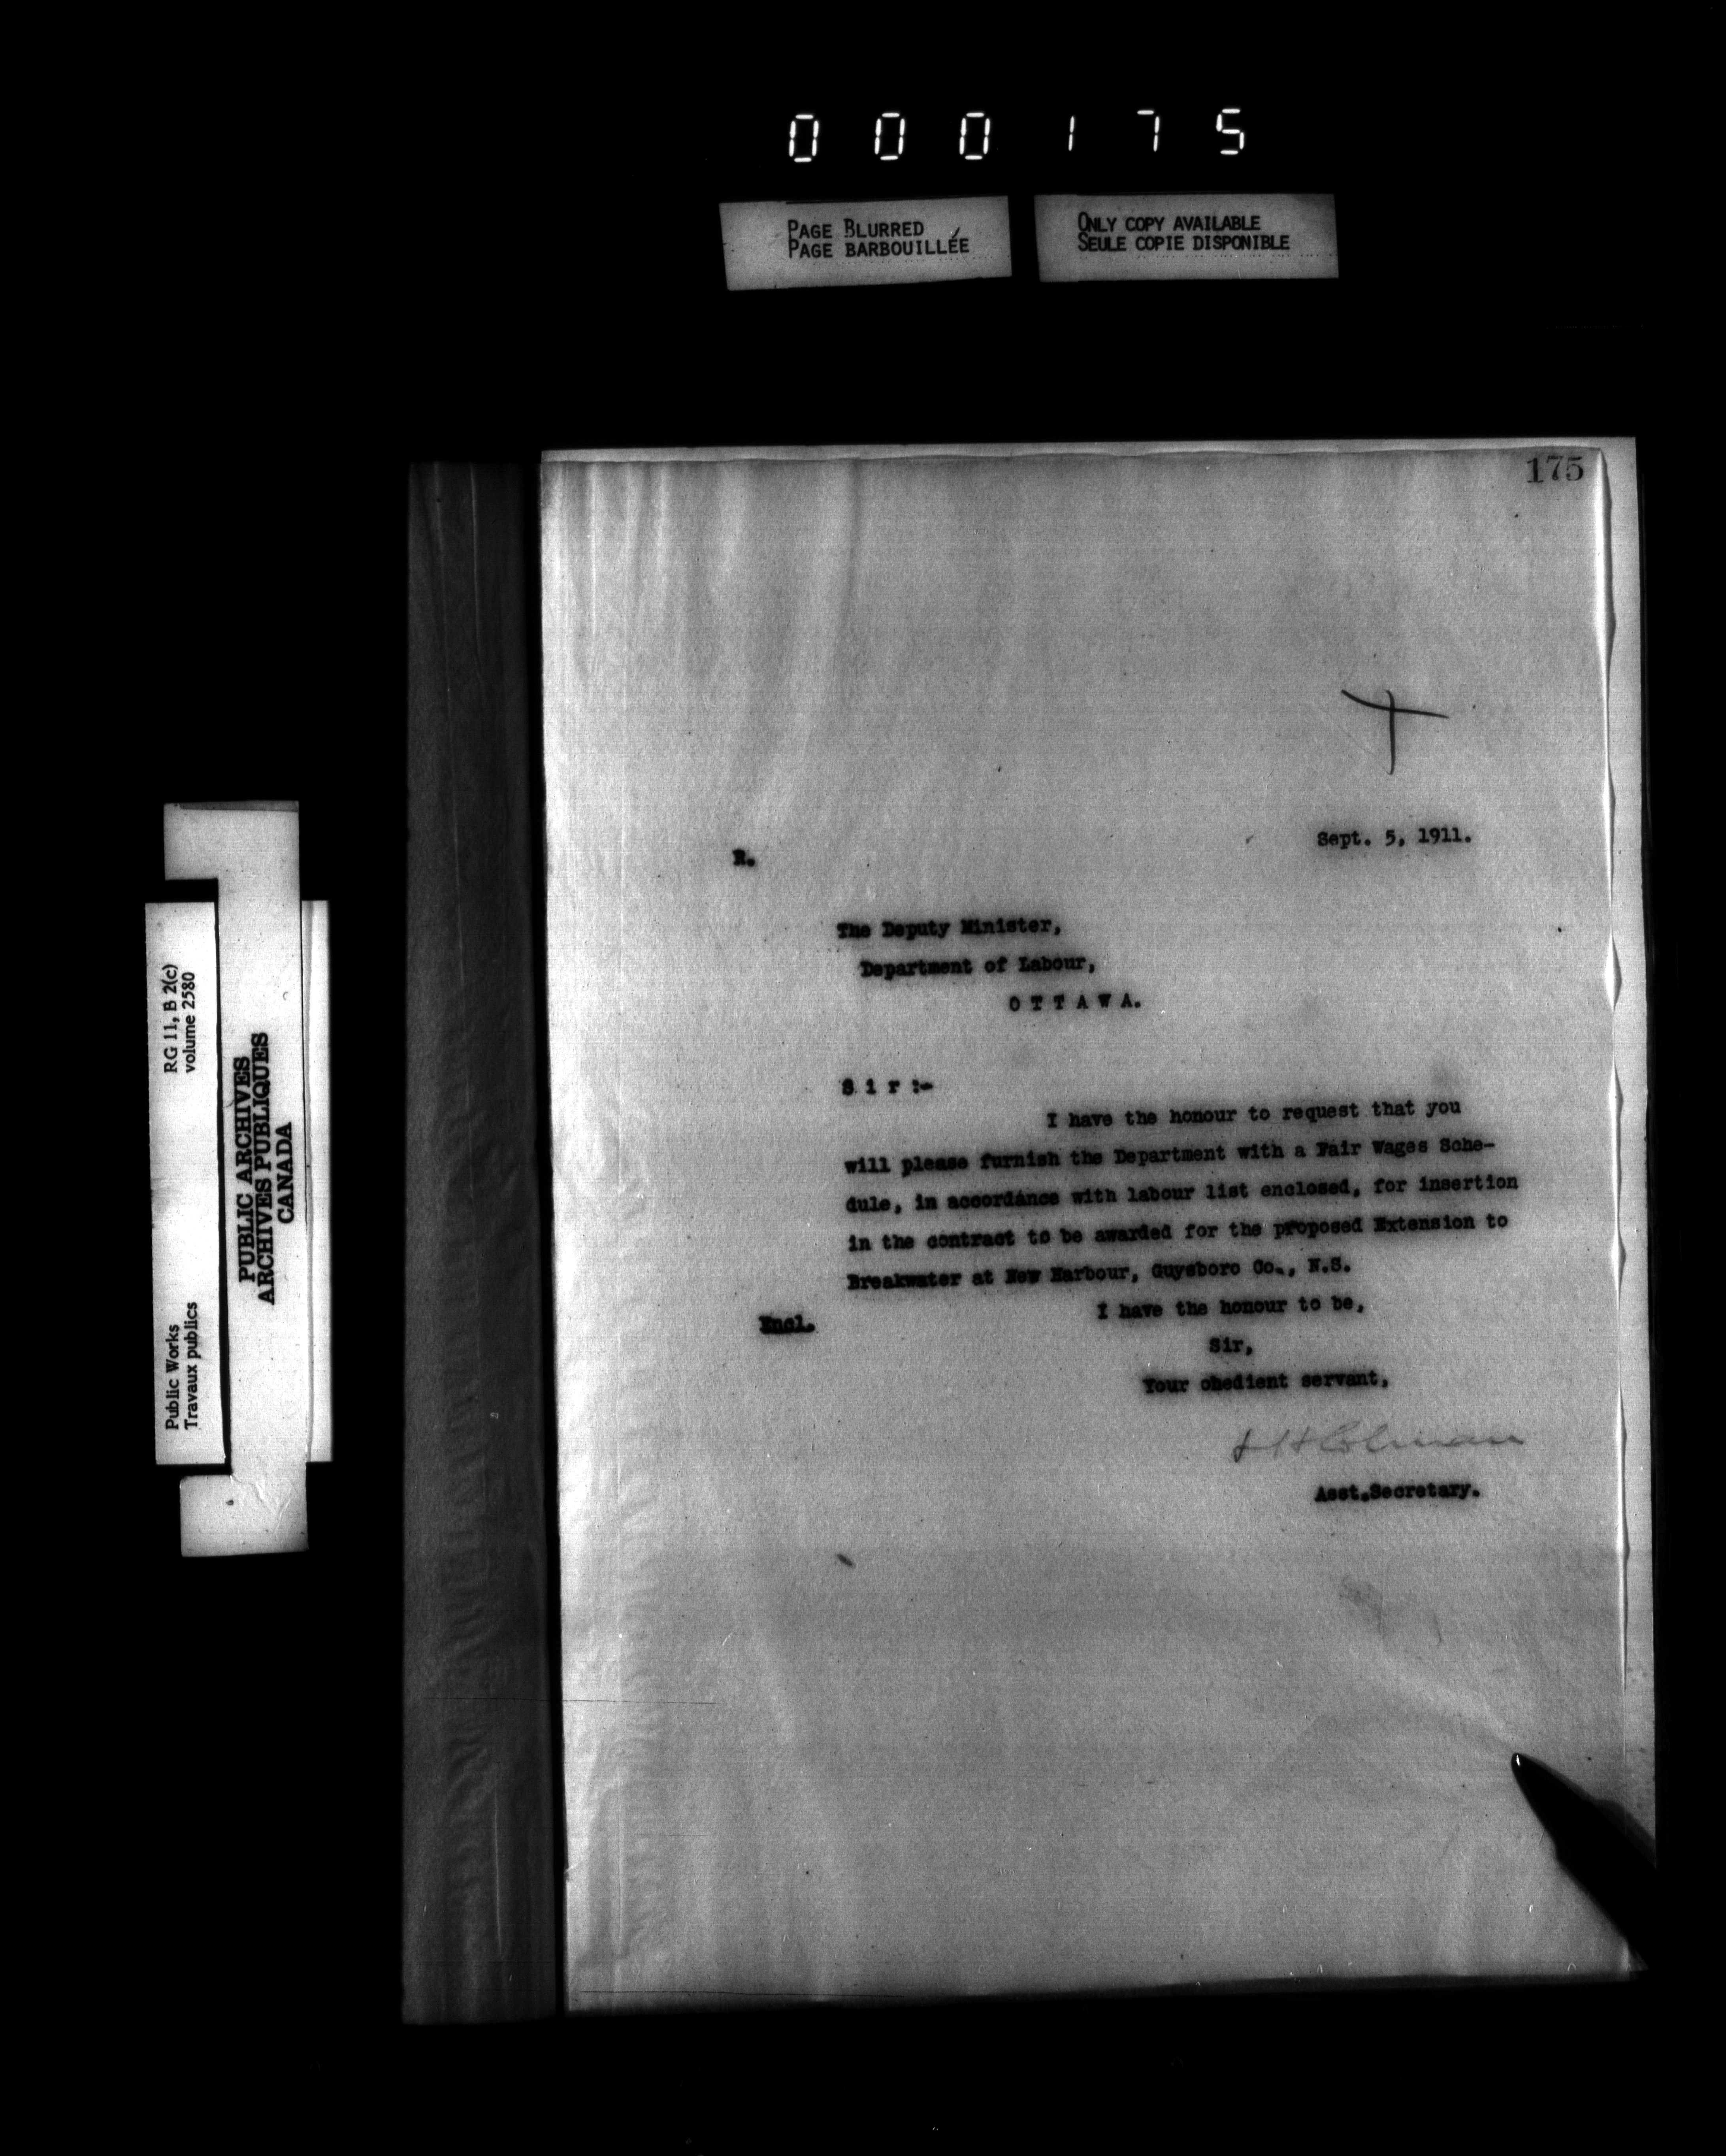 000175
PAGE BLURRED
PAGE BARBOUILLÉE
ONLY COPY AVAILABLE
SEULE COPIE DISPONIBLE
175
Sept. 5, 1911.
R.
The Deputy Minister,
Department of Labour,
O T T A W A.
S i r :-
I have the honour to request that you
will please furnish the Department with a Fair Wages Sche-
dule, in accordance with labour list enclosed, for insertion
in the contract to be awarded for the proposed Extension to
Breakwater at New Harbour, Guysboro Co., N.S.
I have the honour to be,
Encl.
Sir,
Your obedient servant,
Asst.Secretary.
RG 11, B 2(c)
volume 2580
Public Works
Travaux publics
PUBLIC ARCHIVES
ARCHIVES PUBLIQUES
CANADA